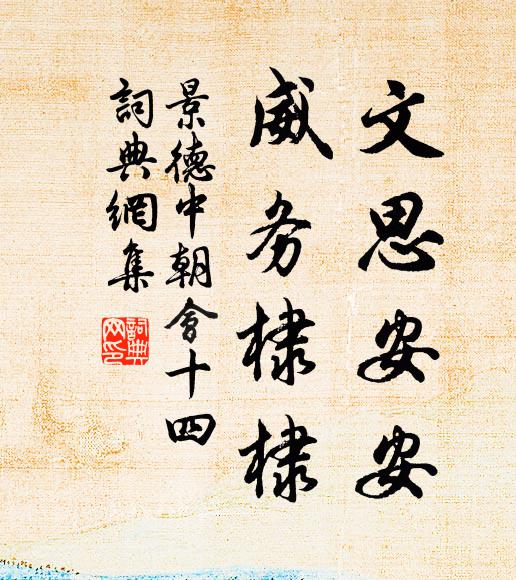 文思安安
威务棣棣
景德中朝會十四
詞典網集
詞典網印